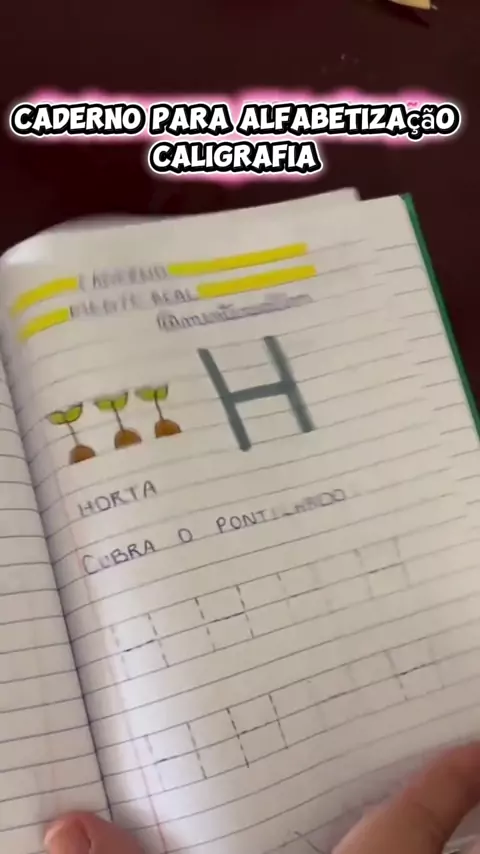 CADERNO PARA ALFABETIZAçãO
CALIGRAFIA
CADERNO
MENTE REAL
H
HORTA
CUBRA O PONTILHADO: